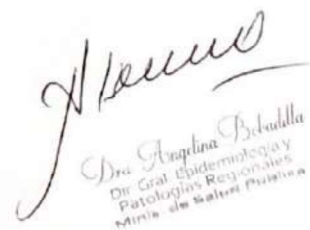 Dra Angelina Bobadilla
Dir Gral Epidemiología y
Patologías Regionales
Minis. de Salud Pública